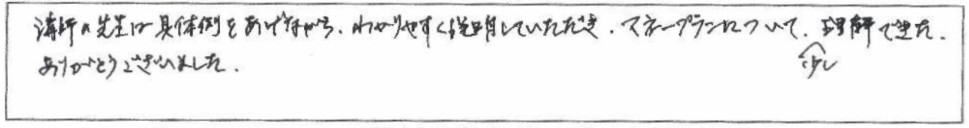 講師の先生は具体例をあげながら、わかりやすく説明していただき、マネープランについて、少し理解できた。
ありがとうございました。